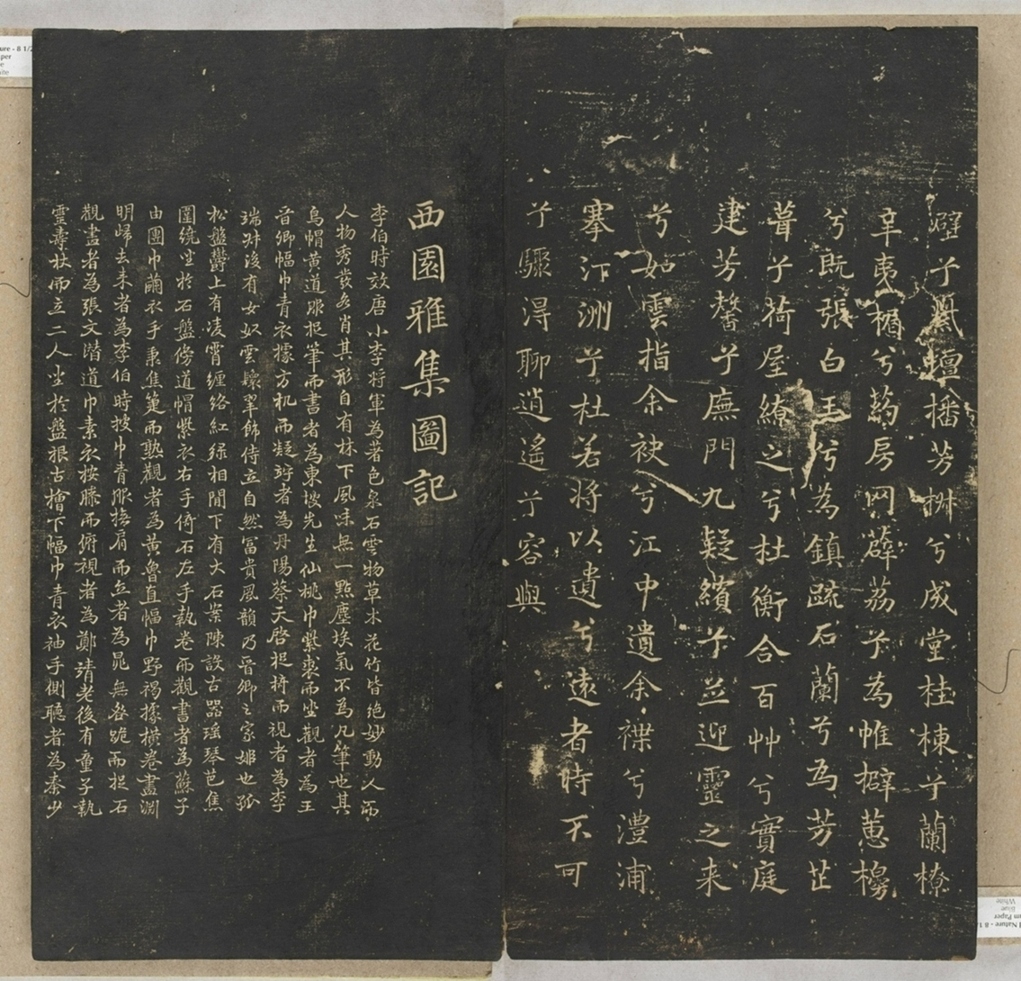 壁兮壇播芳椒兮成堂桂棟兮蘭橑
辛夷楣兮葯房网薜荔兮為帷擗蕙櫋
兮既張白玉兮為鎮疏石蘭兮為芳芷
葺兮荷屋繚之兮杜衡合百艸兮實庭
建芳馨兮廡門九疑繽兮並迎靈之来
兮如雲指余袂兮江中遺余褋兮澧浦
搴汀洲兮杜若將以遺兮遠者時不可
兮驟得聊逍遥兮容與
西園雅集圖記
李伯時效唐小李將軍為著色泉石雲物草木花竹皆絶妙動人而
人物秀發各肖其形自有林下風味無一點塵埃氣不為凡筆也其
烏帽黄道服捉筆而書者為東坡先生仙桃巾紫裘而坐觀者為王
晉卿幅巾青衣據方机而凝竚者為丹陽蔡天啓捉椅而視者為李
端叔後有女奴雲鬟翠飾侍立自然富貴風韻乃晉卿之家姬也孤
松盤鬱上有凌霄纏絡紅緑相間下有大石案陳設古器瑶琴芭蕉
圍繞坐於石盤傍道帽紫衣右手倚石左手執卷而觀書者為蘇子
由團巾繭衣手秉蕉箑而熟觀者為黄魯直幅巾野褐據横卷畫淵
明歸去来者為李伯時披巾青服撫肩而立者為晁無咎跪而捉石
觀畫者為張文潛道巾素衣按膝而俯視者為鄭靖老後有童子執
靈壽杖而立二人坐於盤根古檜下幅巾青衣袖手側聽者為秦少